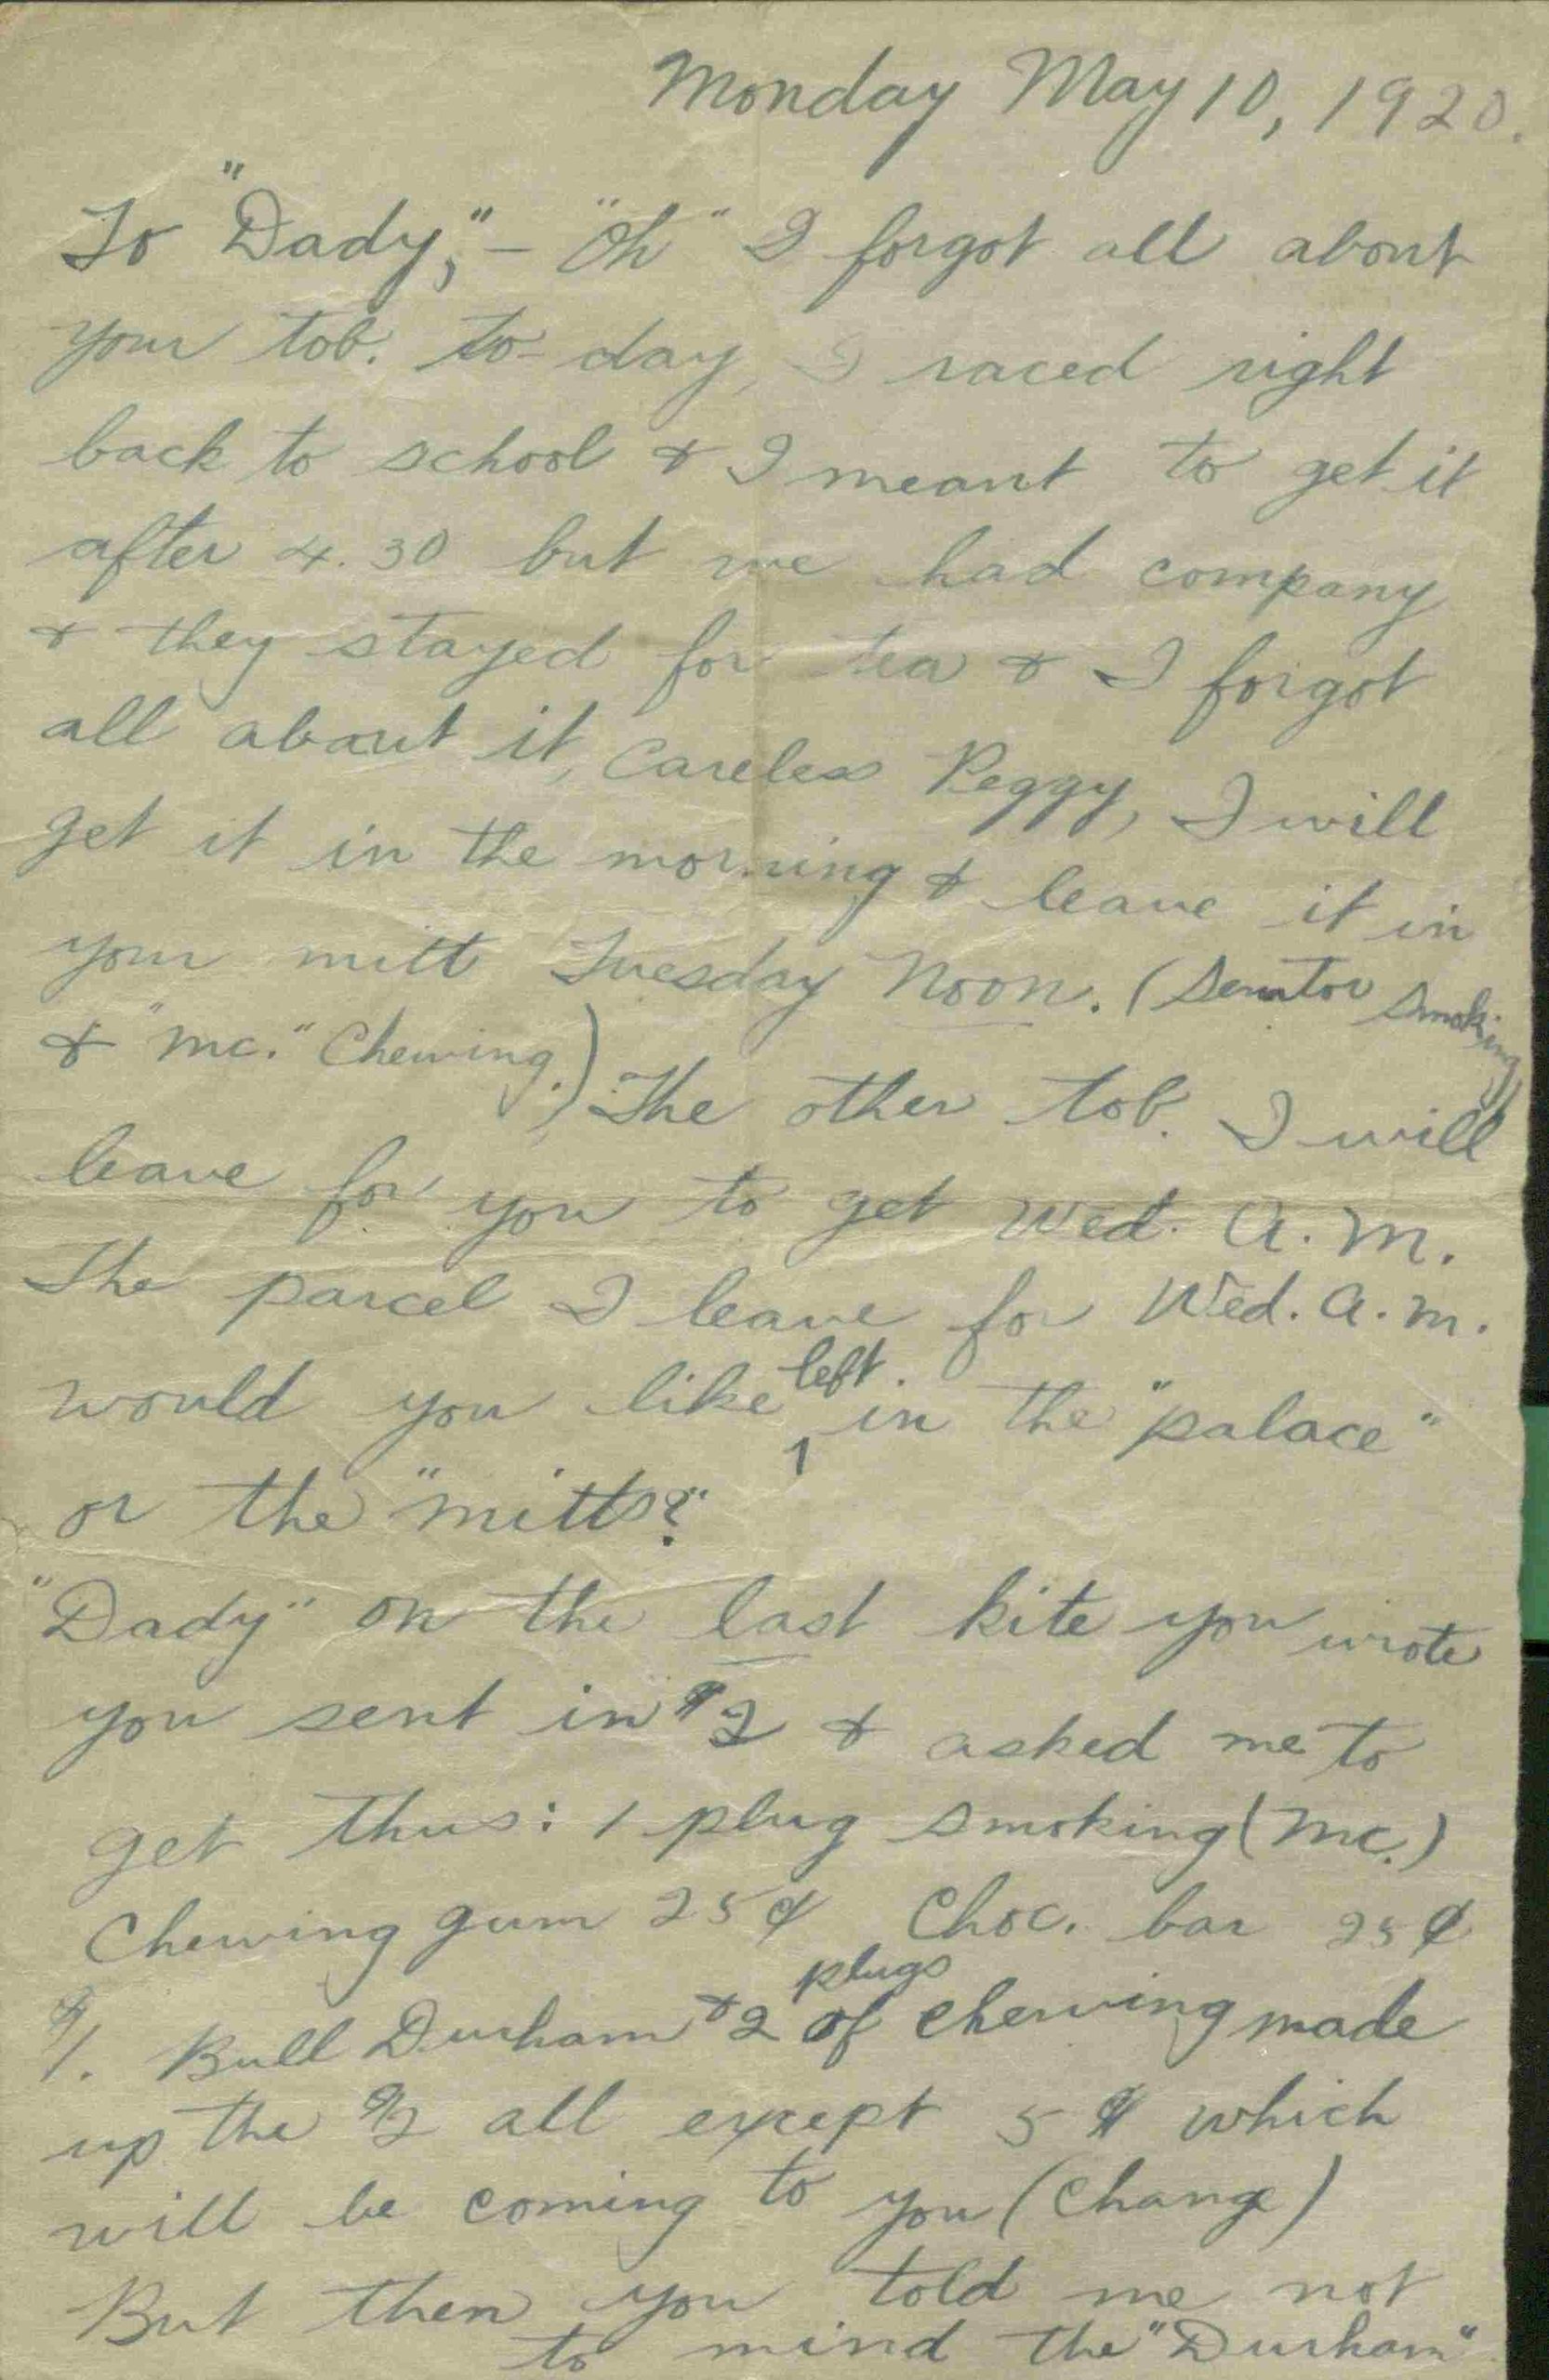 Monday May 10, 1920.
To "Dady," - "Oh" I forgot all about
your tob. to-day, I raced right
back to school & I meant to get it
after 4.30 but we had company
& they stayed for tea & I forgot
all about it, Careless Peggy, I will
get it in the morning & leave it in
your mitt Tuesday Noon. (Senator Smoking)
& "Mc." Chewing.) The other tob. I will
leave for you to get Wed. A.M.
The parcel I leave for Wed. A.M.
would you like left in the "palace"
or the "mitts?"
"Dady" on the last kite you wrote
you sent in $2 & asked me to
get thus: 1 plug smoking (Mc.)
Chewing gum 25¢ Choc. bar 25¢
$1. Bull Durham & 2 plugs of chewing made
up the $2 all except 5¢ which
will be coming to you (Change)
But then you told me not
to mind the "Durham"